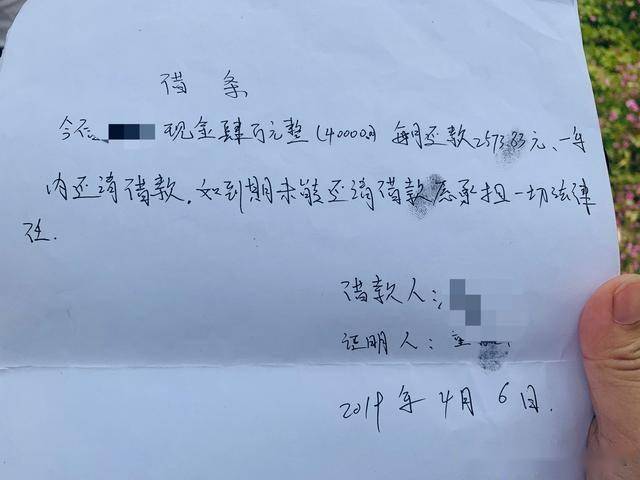 借条
今借 现金肆万元整(40000元)每月还款2573.33元、一年
内还清借款。如到期未能还清借款愿承担一切法律
任.
借款人:
证明人:
2019年4月6日.